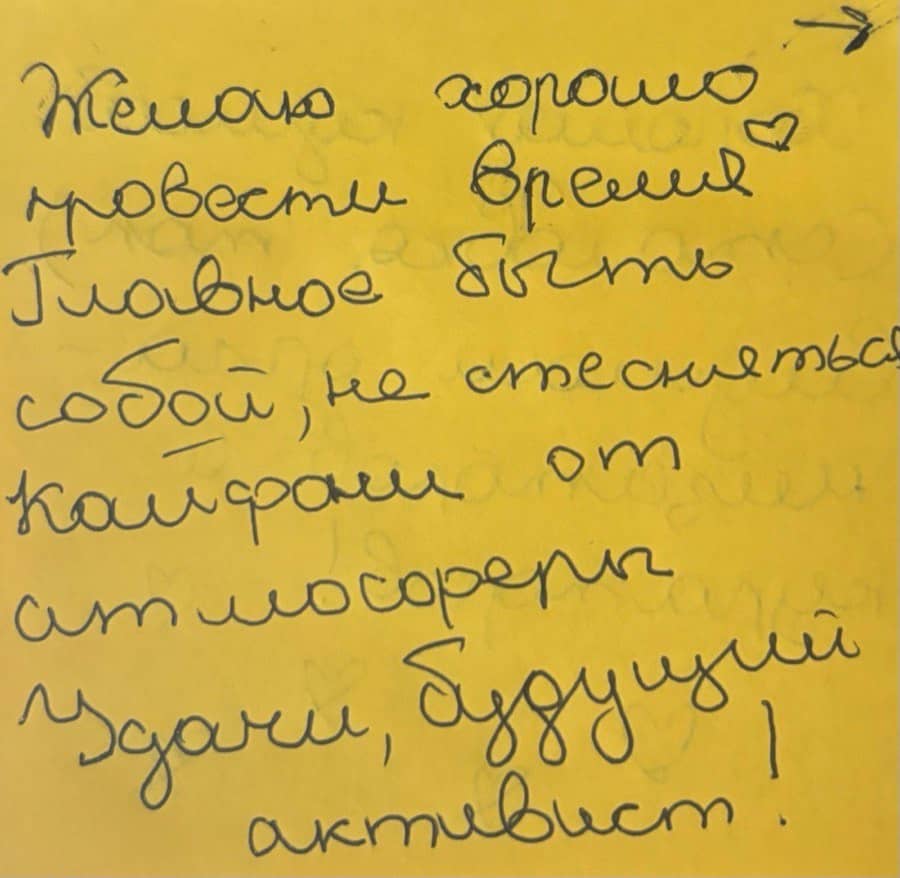 Желаю хорошо
провести время♡
Главное быть
собой, не стесняться
Кайфани от
атмосферы
Удачи, будущий
активист!